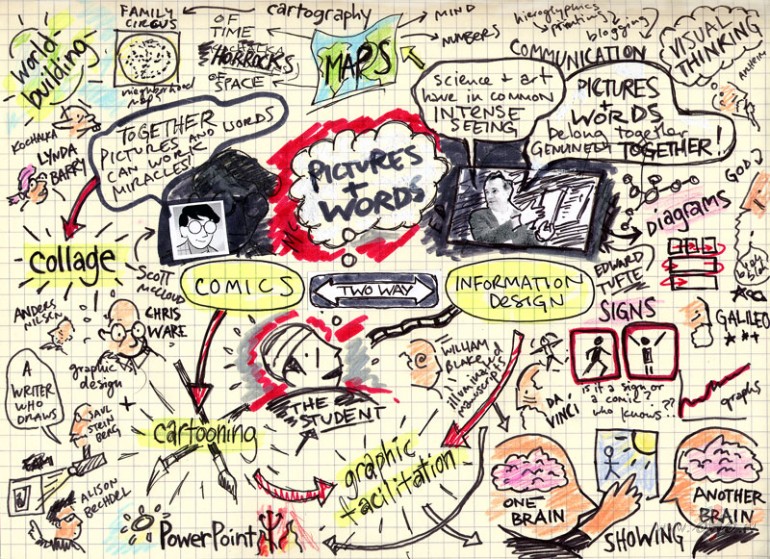 world-
building
FAMILY
CIRCUS
neighborhood
maps
OF
TIME
HORROCKS
OF
SPACE
cartography
MAPS
MIND
NUMBERS
hieroglyphics
printing
blogging
COMMUNICATION
VISUAL
THINKING
ARNHEIM
KOCHALKA
LYNDA
BARRY
TOGETHER
PICTURES AND WORDS
CAN WORK
MIRACLES!
PICTURES
+
WORDS
science + art
have in common
INTENSE
SEEING
PICTURES
+
WORDS
belong together
GENUINELY TOGETHER!
GOD
diagrams
blah
blah
collage
SCOTT
McCLOUD
COMICS
TWO WAY
INFORMATION
DESIGN
EDWARD
TUFTE
SIGNS
GALILEO
ANDERS
NILSEN
CHRIS
WARE
graphic
design
+
A
WRITER
WHO
DRAWS
SAUL
STEIN
BERG
cartooning
THE
STUDENT
WILLIAM
BLAKE
illuminated
manuscripts
DA
VINCI
is it a sign or
a comic? ??
who knows?
graphs
graphic
facilitation
ALISON
BECHDEL
PowerPoint
ONE
BRAIN
SHOWING
ANOTHER
BRAIN